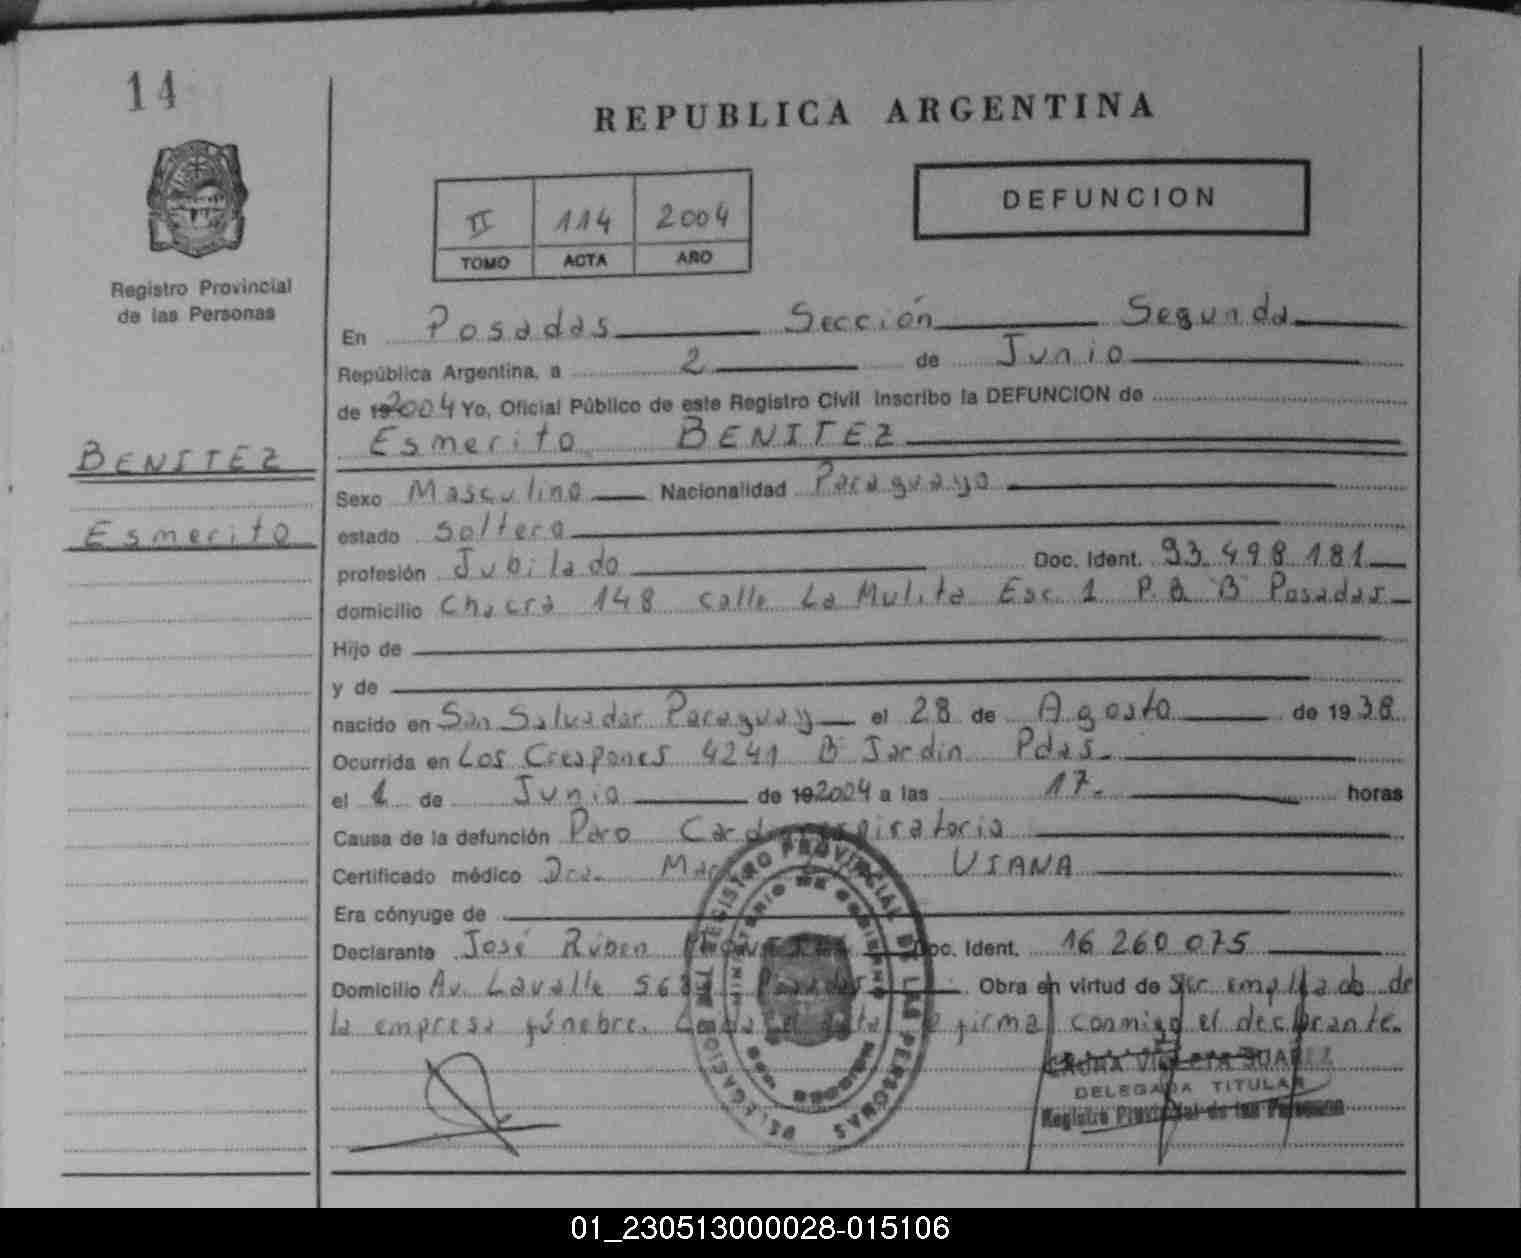 14
REPUBLICA ARGENTINA
DEFUNCION
II 114 2004
TOMO ACTA AÑO
Registro Provincial
de las Personas
En Posadas Sección Segunda
República Argentina, a 2 de Junio
de 192004 Yo, Oficial Público de este Registro Civil inscribo la DEFUNCION de
Esmerito BENITEZ
BENITEZ
Esmerito
Sexo Masculino Nacionalidad Paraguayo
estado soltero
profesión Jubilado Doc. Ident. 93.498.181
domicilio Chacra 148 calle La Mulita Esc 1 P.B. B Posadas
Hijo de
y de
nacido en San Salvador Paraguay el 28 de Agosto de 1938
Ocurrida en Los Crespones 4241 Bº Jardin Pdas.
el 1 de Junio de 192004 a las 17. horas
Causa de la defunción Paro Cardiorespiratorio
Certificado médico Dra. VIANA
Era cónyuge de
Declarante José Rúben Doc. Ident. 16.260.075
Domicilio Av. Lavalle Posadas Obra en virtud de ser empleado de
la empresa fúnebre. firma conmigo el declarante.
REGISTRO PROVINCIAL DE LAS PERSONAS
MINISTERIO DE GOBIERNO
DELEGACION
SUAREZ
DELEGADA TITULAR
Registro Provincial de las Personas
01_230513000028-015106